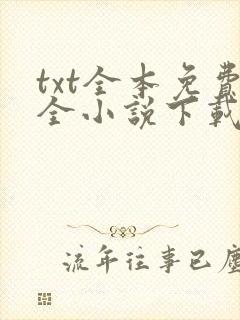 txt全本免費
全小說下載
流年往事已塵